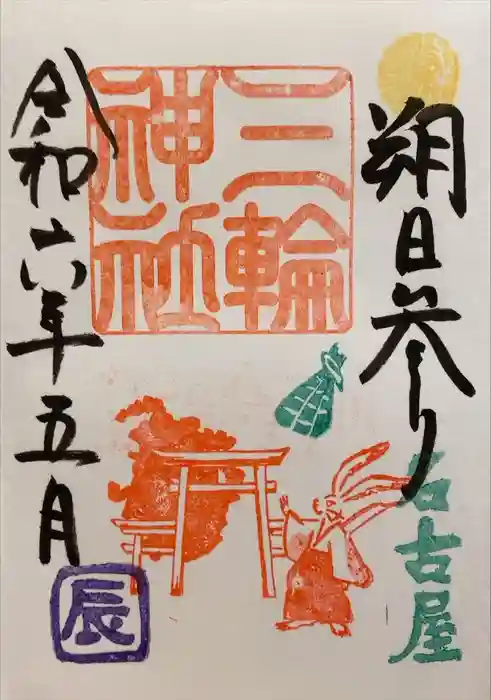 朔日参り
名古屋
三輪
神社
令和六年五月
辰